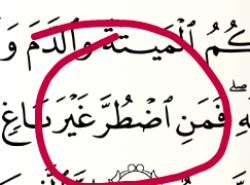 كُمُ ٱلْمَيْتَةَ وَٱلدَّمَ وَ
هِۦۖ فَمَنِ ٱضْطُرَّ غَيْرَ بَاغٍ